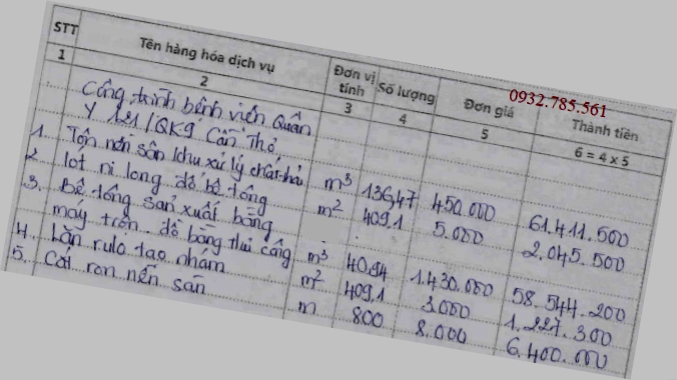 0932.785.561
STT Tên hàng hóa dịch vụ Đơn vị tính Số lượng Đơn giá Thành tiền
1 2 3 4 5 6 = 4 x 5
Công trình bệnh viện Quân
Y 121/QK9 Cần Thơ
1. Tôn nền sân khu xử lý chất thải m³ 136,47 450.000 61.411.500
2 lót ni long đổ bê tông m² 409,1 5.000 2.045.500
3. Bê tông sản xuất bằng
máy trộn đổ bằng thủ công m³ 40,94 1.430.000 58.544.200
4. Lăn rulo tạo nhám m² 409,1 3.000 1.227.300
5. Cắt ron nền sân m 800 8.000 6.400.000